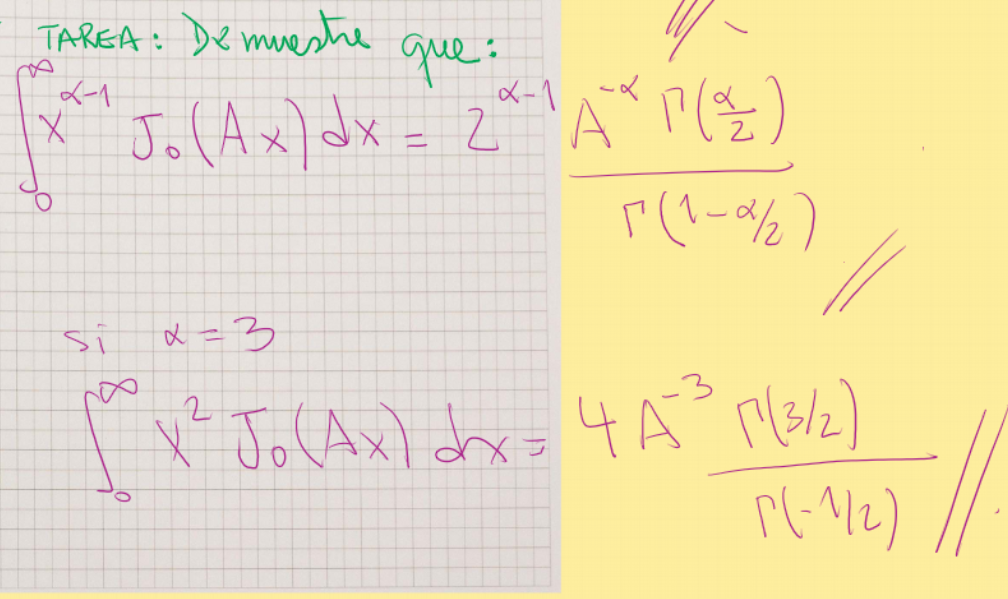 TAREA: Demuestre que:
∫₀^∞ x^(α-1) J₀(Ax) dx = 2^(α-1) A^(-α) Γ(α/2) / Γ(1-α/2) //
si α = 3
∫₀^∞ x² J₀(Ax) dx = 4 A^(-3) Γ(3/2) / Γ(-1/2) //.